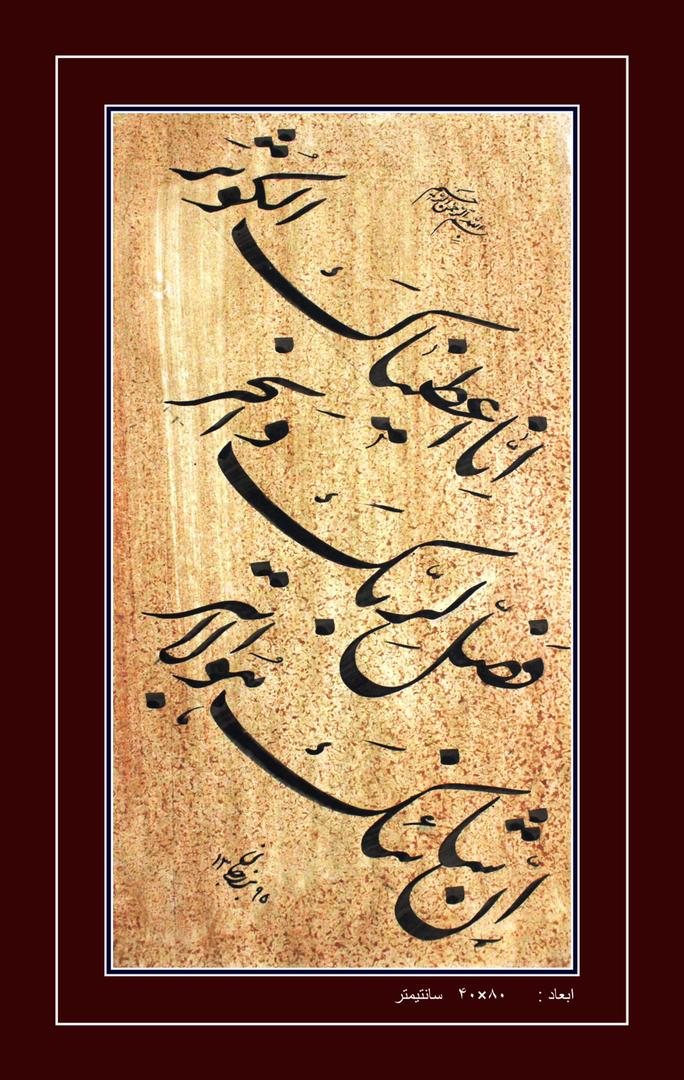 بسم الله الرحمن الرحیم
إنّا اعطیناکَ الکوثر
فصلِّ لربّکَ و انحر
إنّ شانئکَ هو الابتر
۹۵
ابعاد : ۴۰×۸۰ سانتیمتر